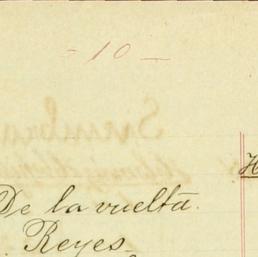 - 10 -
H
De la vuelta.
Reyes